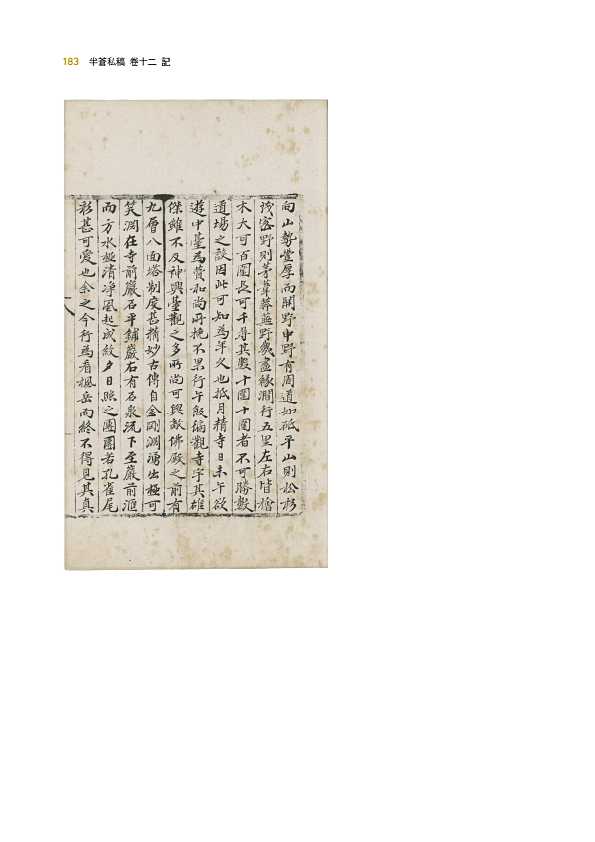 183 半蒼私稿 卷十二 記
向山勢豊厚而開野中野有周道如砥平山則松杉
茂密野則茅葦葬葢野幾盡緣澗行五里左右皆檜
木大可百圍長可千尋其數十圍十圍者不可勝數
道場之設因此可知為年久也抵月精寺日未午欲
遊中臺為贊和尚所挽不果行午飯徧觀寺宇其雄
傑雖不及神興臺觀之多所尚可與敵佛殿之前有
九層八面塔制度甚精妙古傳自金剛淵湧出極可
笑澗在寺前巖石平鋪巖右有石泉流下至巖前滙
而方水極清净風起成紋夕日照之團團若孔雀尾
彩甚可愛也余之今行為看楓岳而終不得見其真